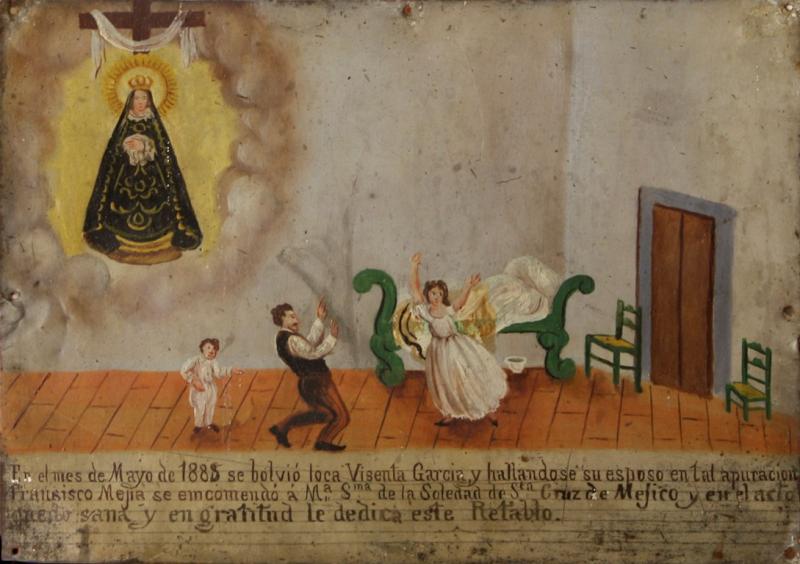 En el mes de Mayo de 1888 se bolvió loca Visenta Garcia, y hallandose su esposo en tal apuracion
Fransisco Mejia se emcomendó á Mª. Sma. de la Soledad de Stn Cruz de Mejico y en el acto
quedo sana, y en gratitud le dedica este Retablo.